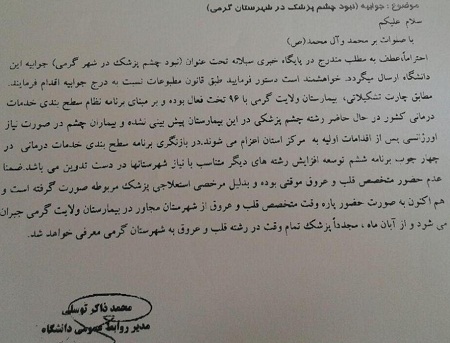 موضوع : جوابیه (نبود چشم پزشک در شهرستان گرمی)
سلام علیکم
با صلوات بر محمد وآل محمد(ص)
احتراماً،عطف به مطلب مندرج در پایگاه خبری سبلانه تحت عنوان (نبود چشم پزشک در شهر گرمی) جوابیه این
دانشگاه ارسال میگردد. خواهشمند است دستور فرمایید طبق قانون مطبوعات نسبت به درج جوابیه اقدام فرمایند.
مطابق چارت تشکیلاتی، بیمارستان ولایت گرمی با ۹۶ تخت فعال بوده و بر مبنای برنامه نظام سطح بندی خدمات
درمانی کشور در حال حاضر رشته چشم پزشکی در این بیمارستان پیش بینی نشده و بیماران چشم در صورت نیاز
اورژانسی پس از اقدامات اولیه به مرکز استان اعزام می شوند.در بازنگری برنامه سطح بندی خدمات درمانی در
چهار چوب برنامه ششم توسعه افزایش رشته های دیگر متناسب با نیاز شهرستانها در دست تدوین می باشد.ضمنا
عدم حضور متخصص قلب و عروق موقتی بوده و بدلیل مرخصی استعلاجی پزشک مربوطه صورت گرفته است و
هم اکنون به صورت حضور پاره وقت متخصص قلب و عروق از شهرستان مجاور در بیمارستان ولایت گرمی جبران
می شود و از آبان ماه ، مجدداً پزشک تمام وقت در رشته قلب و عروق به شهرستان گرمی معرفی خواهد شد.
محمد ذاکر توسلی
مدیر روابط عمومی دانشگاه